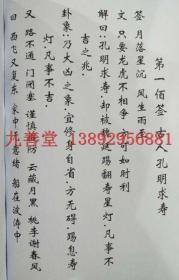 第一佰签 古人孔明求寿
签 月落星沉 风生雨
文 只要龙虎不相争 可如时利
解曰:孔明求寿 却被魏延踢翻寿星灯.凡事不
吉之兆.
卦象:乃大凶之象.宜修身自省.方无碍.踢息寿
灯.凡事不吉
又 路不通 门闭塞 谨慎提防 云藏月黑 桃李谢春风
曰 西飞又复东 家中 愁绪 船在波涛中
九善堂 13892956881